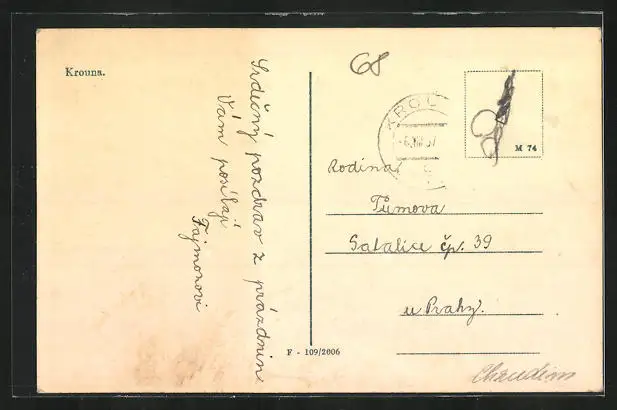 Krouna.
68
KROU
M 74
Srdečný pozdrav z prázdnin
Vám posílají
Fajmonovi
Rodina
Tůmova
Satalice čp. 39
u Prahy.
F - 109/2006
Chrudim